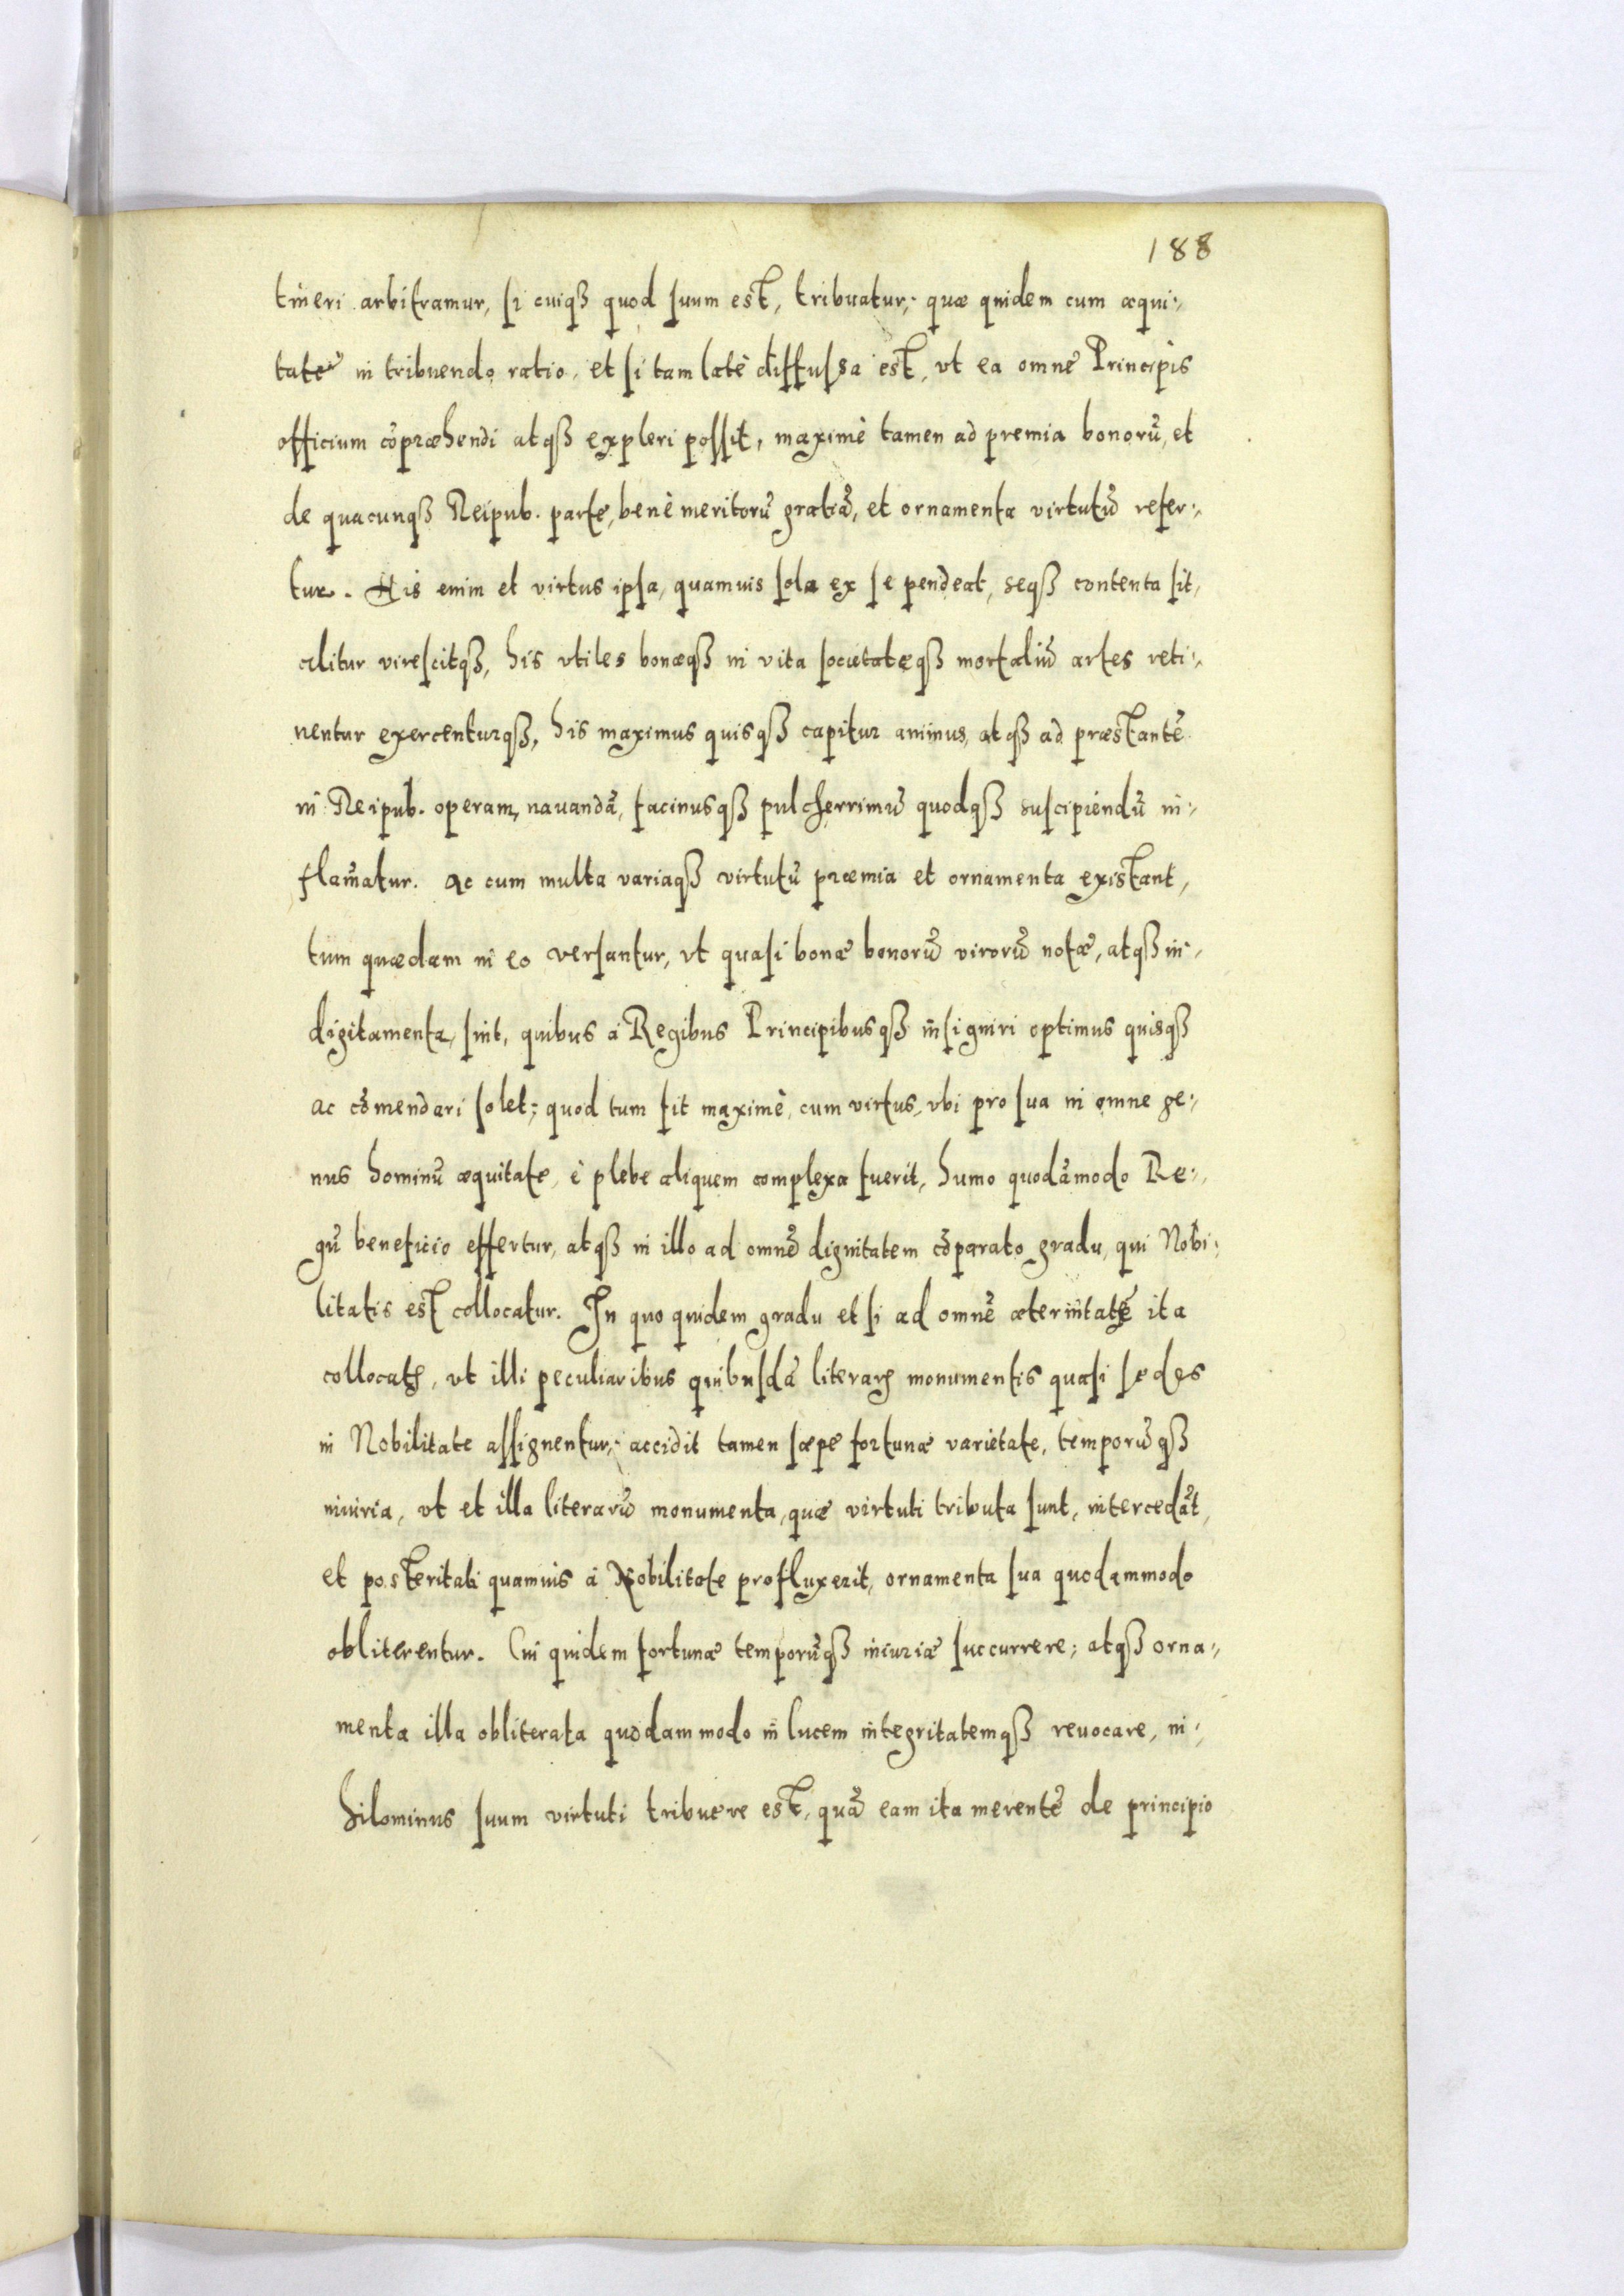 188
tineri arbitramur, si cuiqȝ quod suum est, tribuatur; quæ quidem cum æqui-
tate in tribuendo ratio, et si tam latè diffussa est, vt ea omnē Principis
officium cōpræhendi atqȝ expleri possit, maximè tamen ad premia bonorū, et
de quacunqȝ Reipub. parte, benè meritorū gratiā, et ornamenta virtutū refer-
tur. His enim et virtus ipsa, quamuis sola ex se pendeat, seqȝ contenta sit,
alitur virescitqȝ, his vtiles bonæqȝ in vita societateqȝ mortaliū artes reti-
nentur exercenturqȝ, his maximus quisqȝ capitur animus, atqȝ ad præstantē
in Reipub. operam, nauandā, facinusqȝ pulcherrimū quodqȝ suscipiendū in-
flam̄atur. Ac cum multa variaqȝ virtutū præmia et ornamenta existant,
tum quædam in eo versantur, vt quasi bonæ bonorū virorū notæ, atqȝ in-
digitamenta, sint, quibus à Regibus Principibusqȝ insigniri optimus quisqȝ
ac cōmendari solet; quod tum fit maximè, cum virtus, vbi pro sua in omne ge-
nus hominū æquitate, è plebe aliquem complexa fuerit, humo quodāmodo Re-
gū beneficio effertur, atqȝ in illo ad omnē dignitatem cōparato gradu, qui Nobi-
litatis est collocatur. In quo quidem gradu et si ad omnē æternitatē ita
collocatꝭ, vt illi peculiaribus quibusdā literarꝭ monumentis quasi sedes
in Nobilitate assignentur; accidit tamen sæpe fortunæ varietate, temporūqȝ
iniuria, vt et illa literarū monumenta, quæ virtuti tributa sunt, intercedāt,
et posteritati quamuis à Nobilitate profluxerit, ornamenta sua quodammodo
obliterentur. Cui quidem fortunæ temporūqȝ iniuriæ succurrere; atqȝ orna-
menta illa obliterata quodammodo in lucem integritatemqȝ reuocare, ni-
hilominus suum virtuti tribuere est, quā eam ita merentē de principio